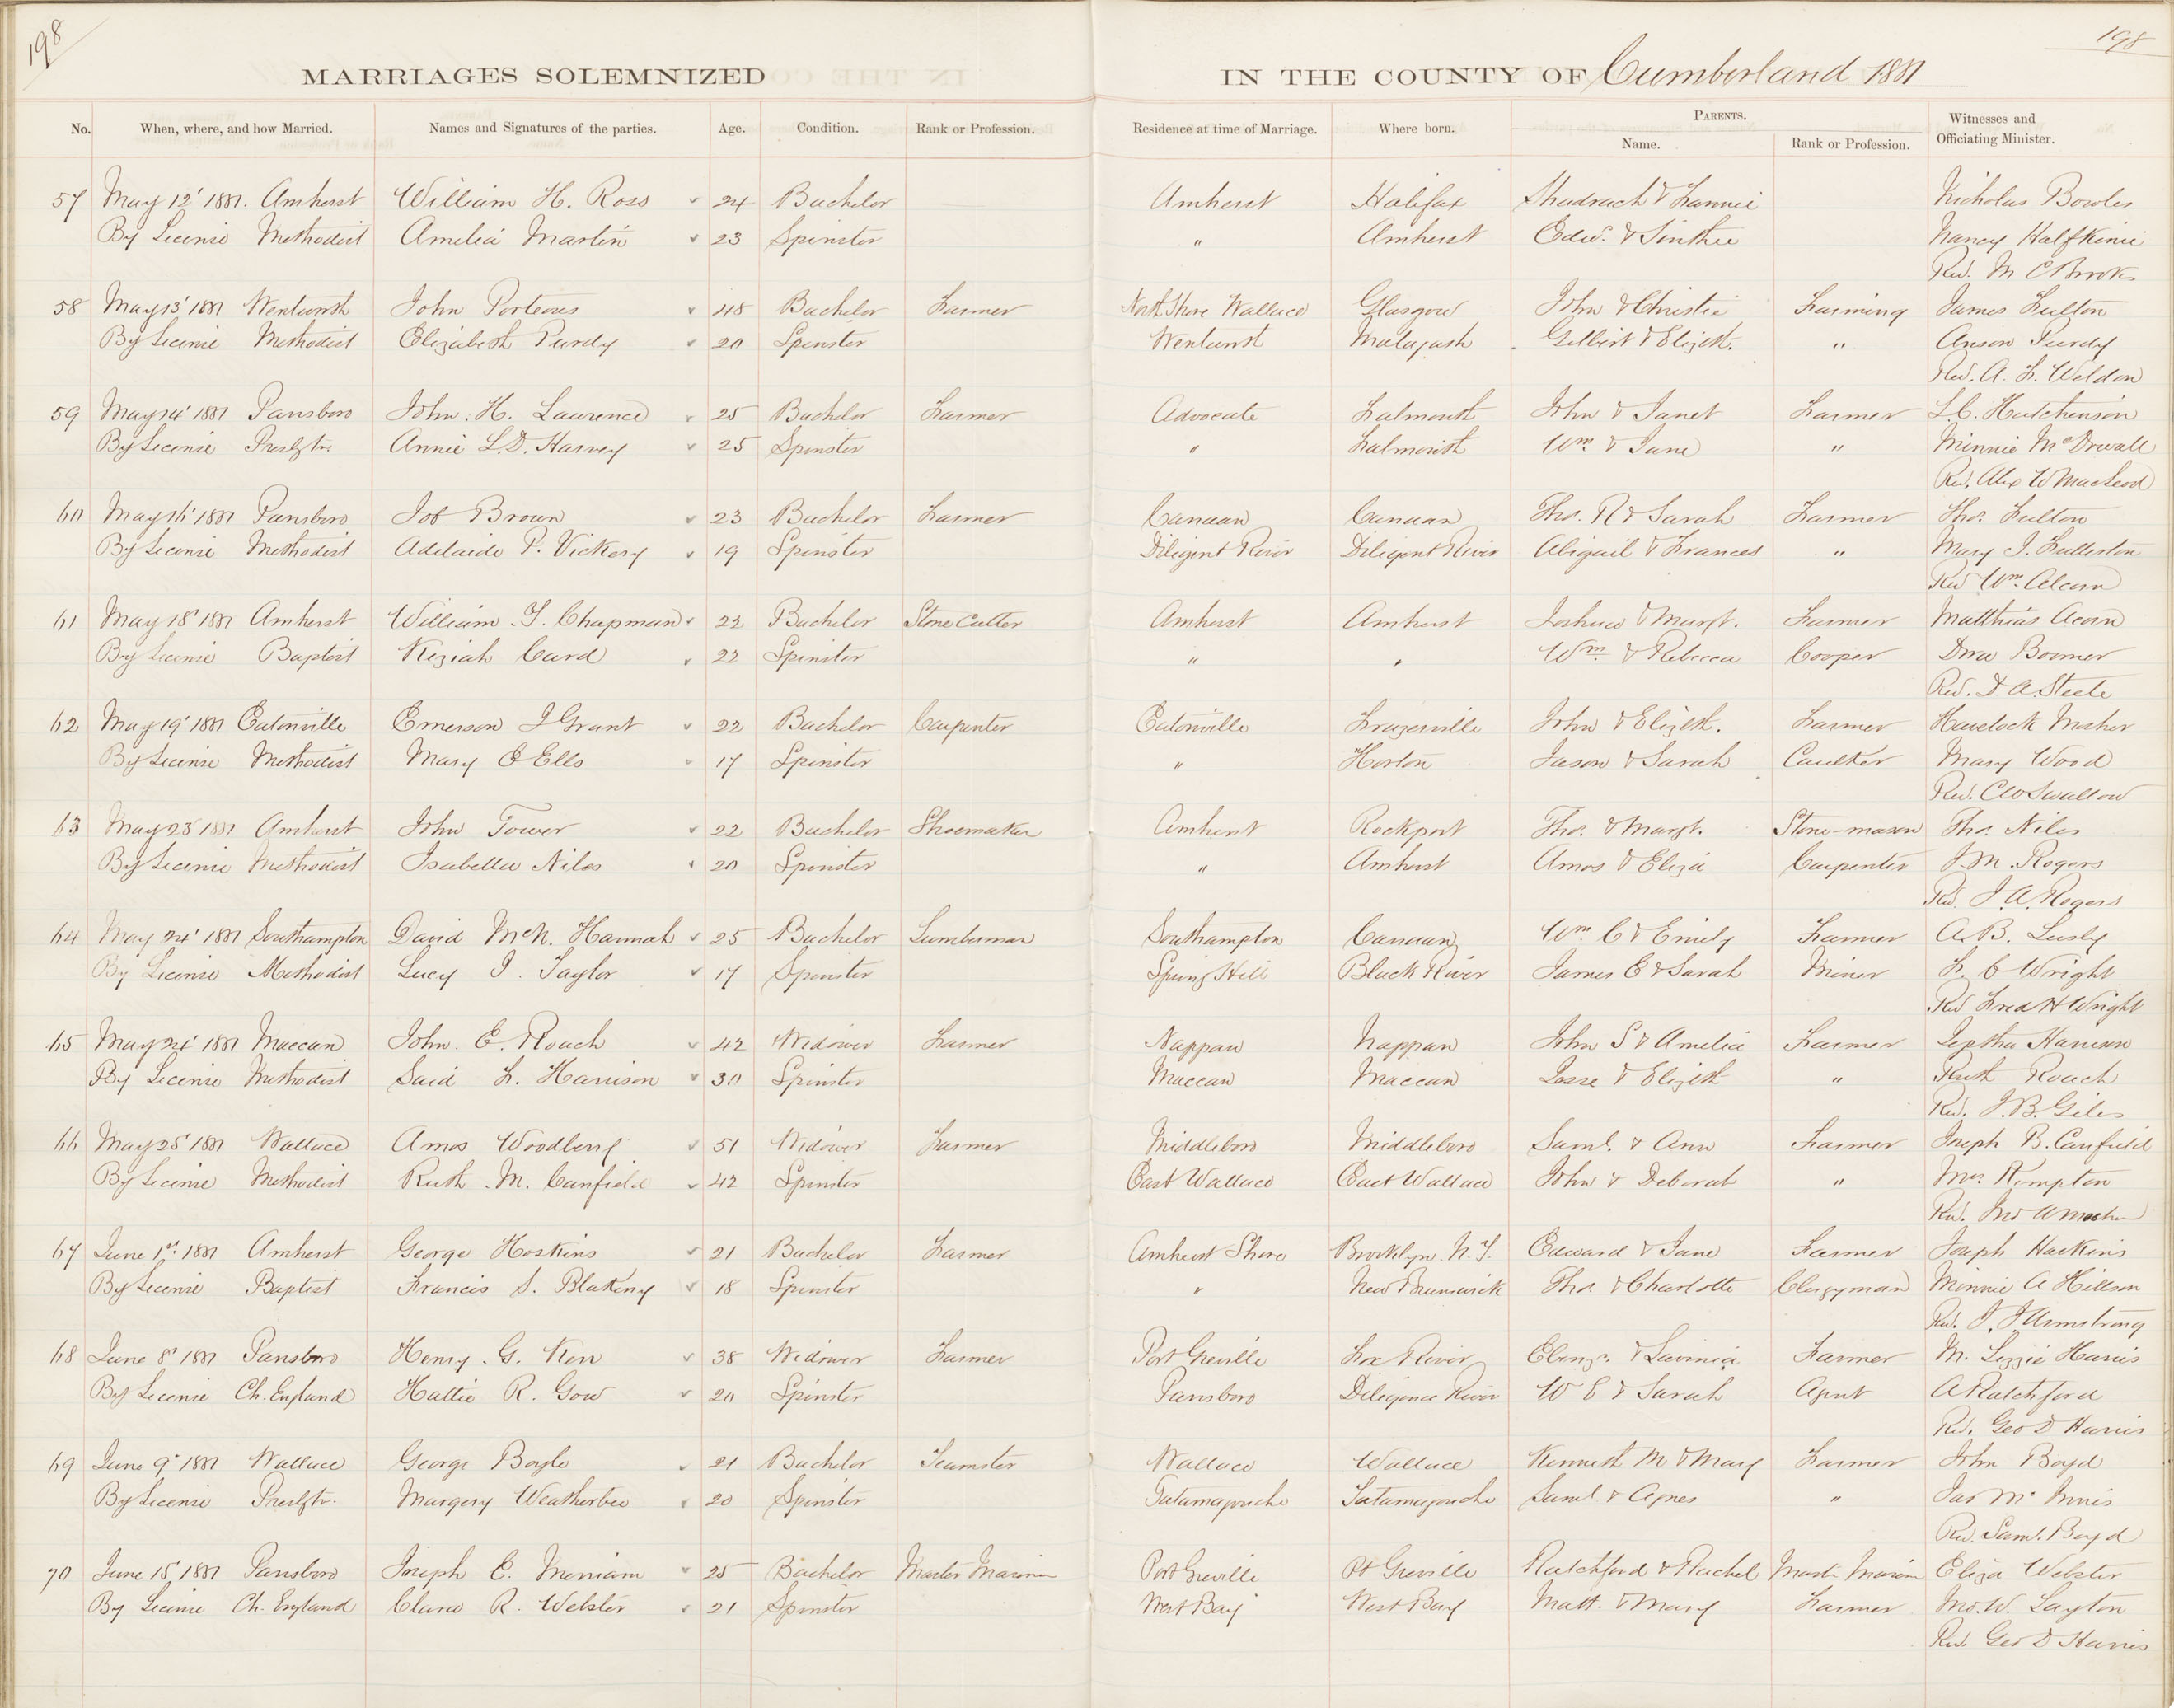 198
198
MARRIAGES SOLEMNIZED IN THE COUNTY OF Cumberland 1881
No. When, where, and how Married. Names and Signatures of the parties. Age. Condition. Rank or Profession. Residence at time of Marriage. Where born. PARENTS. Witnesses and Officiating Minister.
Name. Rank or Profession.
57 May 12' 1881. Amherst William H. Ross 24 Bachelor Amherst Halifax Shadrach & Fannie Nicholas Bowles
By License Methodist Amelia Martin 23 Spinster " Amherst Edw. & Sinthee Nancy Halfkinie
Rev. M C Brooks
58 May 13' 1881 Wentworth John Porteous 48 Bachelor Farmer North Shore Wallace Glasgow John & Christie Farming James Fulton
By License Methodist Elizabeth Purdy 20 Spinster Wentworst Malagash Gilbert & Elizth. " Anson Purdy
Rev. A. F. Weldon
59 May 14' 1881 Parrsboro John. H. Lawrence 25 Bachelor Farmer Advocate Falmouth John & Janet Farmer L.C. Hutchinson
By License Presbytn. Annie L.D. Harvey 25 Spinster " Falmouth Wm. & Jane " Minnie McDowall
Rev. Alex W MacLeod
60 May 16' 1881 Parrsboro Job Brown 23 Bachelor Farmer Canaan Canaan Thos. R & Sarah Farmer Thos. Fulton
By License Methodist Adelaide P. Vickery 19 Spinster Diligent River Diligent River Abigail & Frances " Mary J. Fullerton
Rev Wm. Alcorn
61 May 18' 1881 Amherst William. T. Chapman 22 Bachelor Stone Cutter Amherst Amherst Joshua & Margt. Farmer Matthias Acorn
By License Baptist Keziah Card 22 Spinster " " Wm. & Rebecca Cooper Dora Boomer
Rev. D. A. Steele
62 May 19' 1881 Eatonville Emerson J Grant 22 Bachelor Carpenter Eatonville Frazerville John & Elizth. Farmer Havelock Mosher
By License Methodist Mary E Ells 17 Spinster " Horton Jason & Sarah Caulker Mary Wood
Rev. C W Swallow
63 May 23' 1881 Amherst John Tower 22 Bachelor Shoemaker Amherst Rockport Thos. & Margt. Stone-mason Thos. Niles
By License Methodist Isabella Niles 20 Spinster " Amherst Amos & Eliza Carpenter J. M. Rogers
Rev. J. A. Rogers
64 May 24' 1881 Southampton David McN. Hannah 25 Bachelor Lumberman Southampton Canaan Wm. C & Emily Farmer A. B. Lusby
By License Methodist Lucy J. Taylor 17 Spinster Spring Hill Black River James E & Sarah Miner F. C Wright
Rev Fred H Wright
65 May 24' 1881 Maccan John. E. Roach 42 Widower Farmer Nappan Nappan John S & Amelia Farmer Jeptha Harrison
By License Methodist Said F. Harrison 30 Spinster Maccan Maccan Jesse & Elizth " Ruth Roach
Rev. J. B. Giles
66 May 25' 1881 Wallace Amos Woodberry 51 Widower Farmer Middleboro Middleboro Saml. & Ann Farmer Joseph B. Canfield
By License Methodist Ruth. M. Canfield 42 Spinster East Wallace East Wallace John & Deborah " Mrs. Kempton
Rev. Jno A Mosher
67 June 1st. 1881 Amherst George Hoskins 21 Bachelor Farmer Amherst Shore Brooklyn. N.Y. Edward & Jane Farmer Joseph Harkins
By License Baptist Francis S. Blakeny 18 Spinster " New Brunswick Thos. & Charlotte Clergyman Minnie A Hillson
Rev. J. J Armstrong
68 June 8' 1881 Parrsboro Henry. G. Kerr 38 Widower Farmer Port Greville Fox River Ebenzr. & Lavinia Farmer M. Lizzie Harris
By License Ch. England Hattie R. Gow 20 Spinster Parrsboro Diligence River W E & Sarah Agent A Ratchford
Rev. Geo D Harris
69 June 9' 1881 Wallace George Boyle 21 Bachelor Teamster Wallace Wallace Kenneth M & Mary Farmer John Boyd
By License Presbytr. Margery Weatherbee 20 Spinster Tatamagouche Tatamagouche Saml. & Agnes " Jas Mc Innis
Rev. Saml. Boyd
70 June 15' 1881 Parrsboro Joseph E. Merriam 25 Bachelor Master Mariner Port Greville Pt Greville Ratchford & Rachel Master Mariner Eliza Webster
By License Ch. England Clara R. Webster 21 Spinster West Bay West Bay Matt. & Mary Farmer Jno. W. Layton
Rev. Geo D Harris